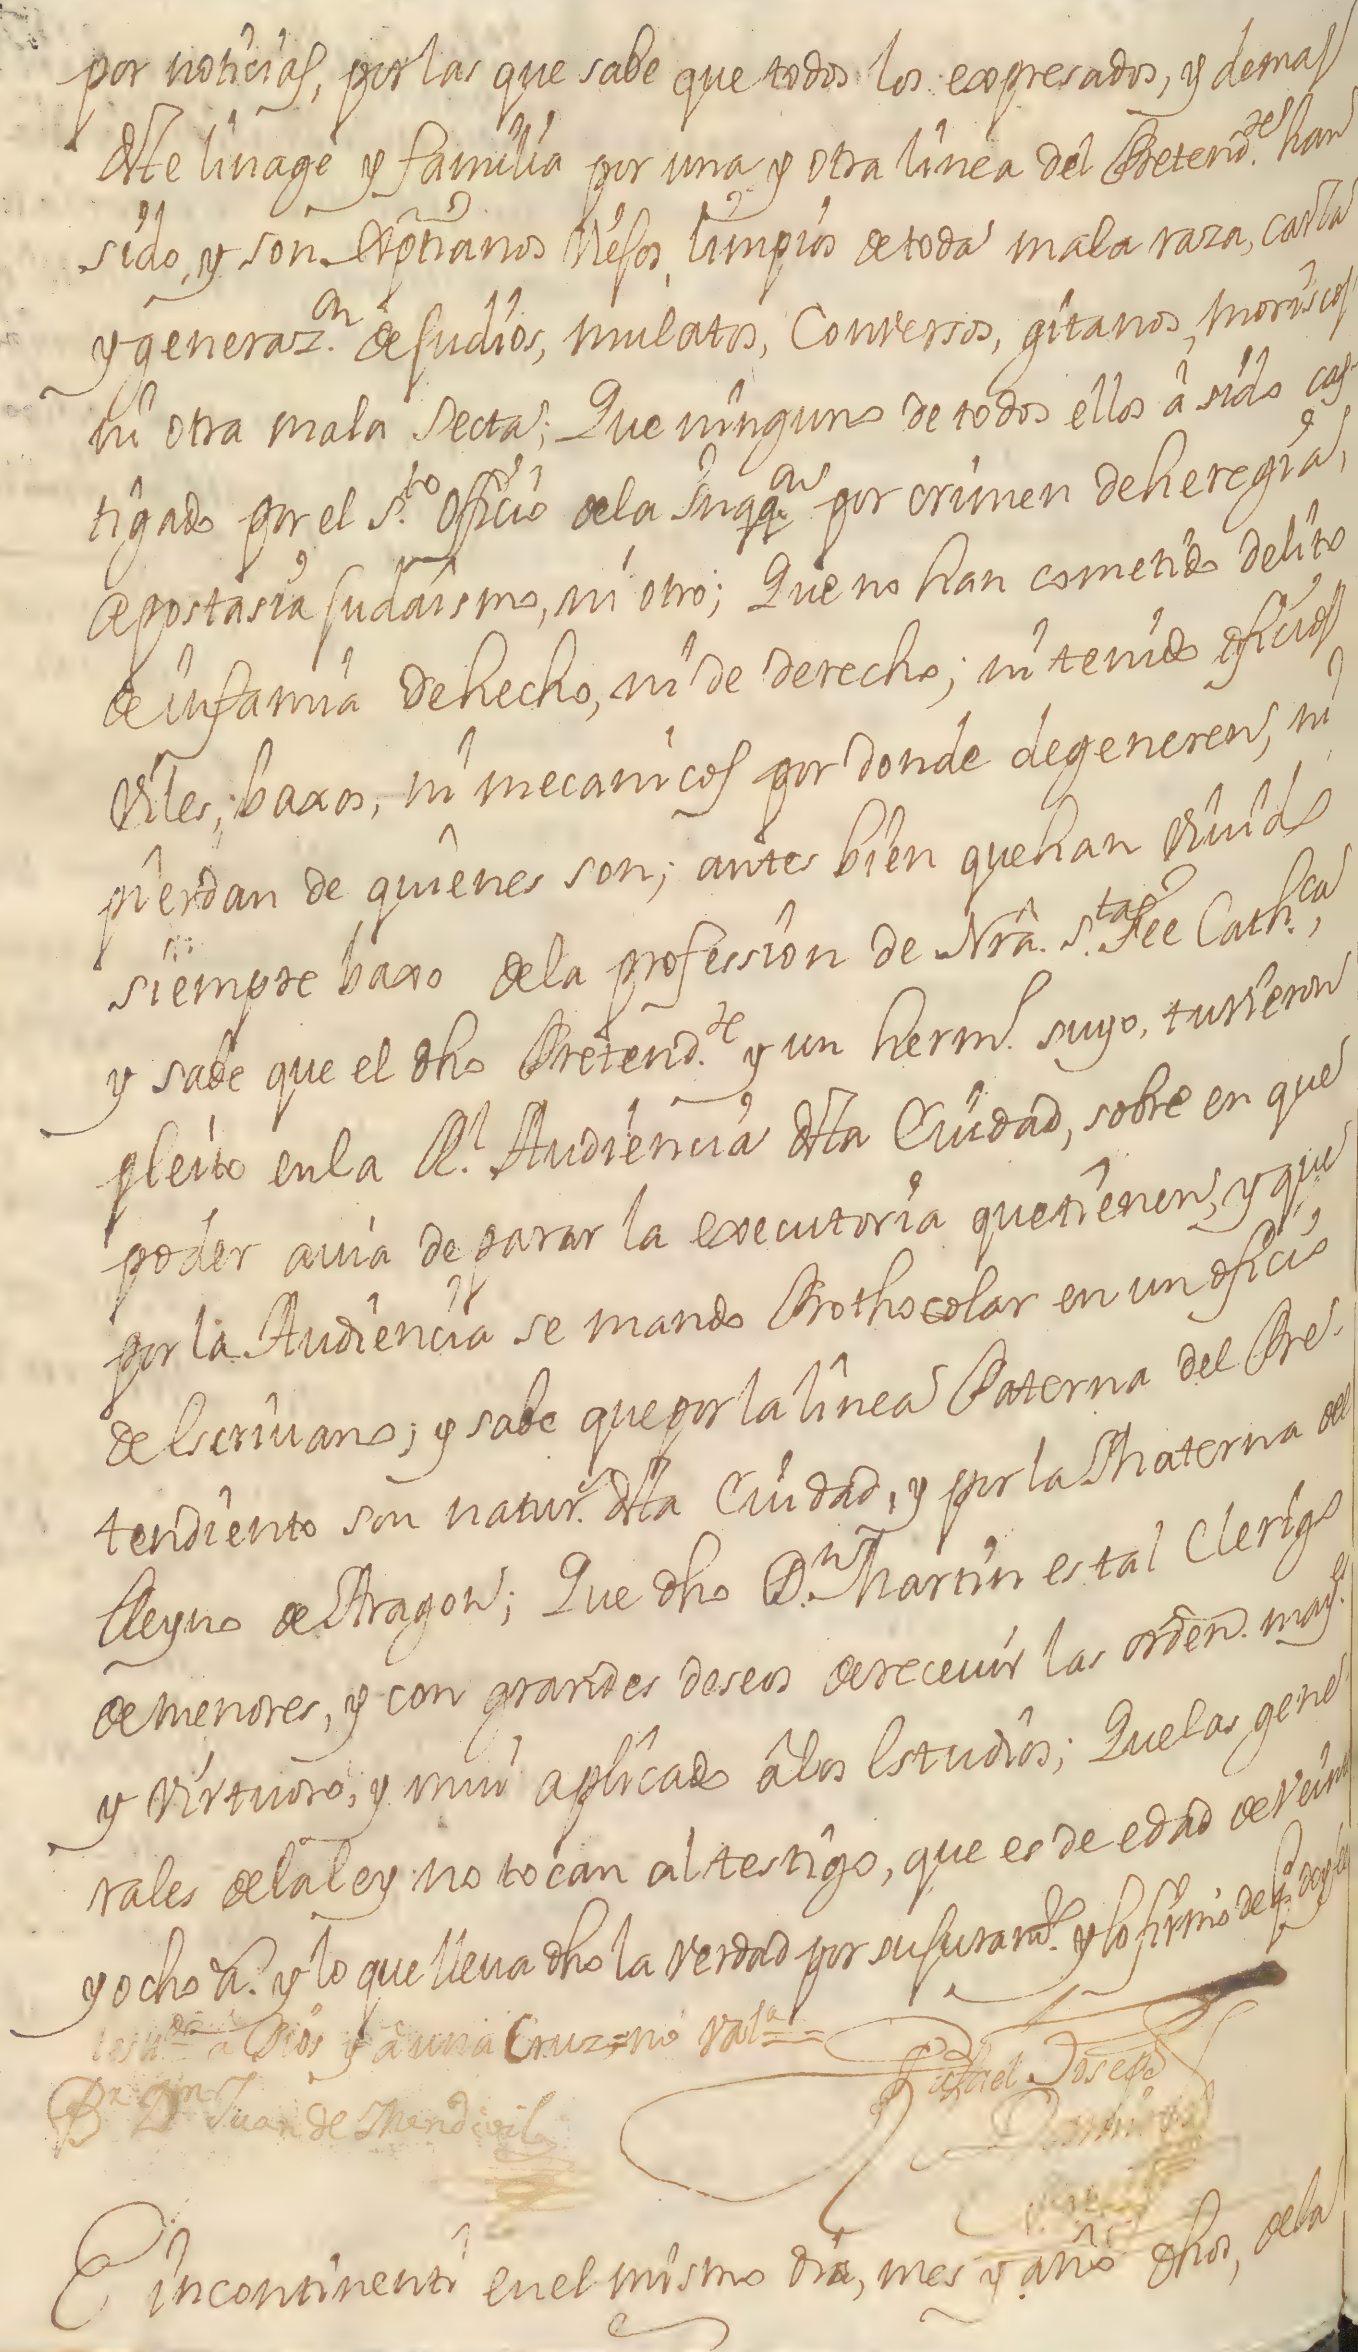 por noticias, por las que sabe que todos los expresados, y demas
dste linage y familia por una y otra linea del Pretend.te han
sido, y son Xptianos Viejos, limpios de toda mala raza, casta
y generaz.on de Judios, mulatos, Conversos, gitanos, moriscos
ni otra mala Secta; Que ninguno de todos ellos â sido cas-
tigado por el S.to Oficio dela Inqq.on por crimen de heregia,
Apostasia Judaismo, ni otro; Que no han cometido delito
de infamia de hecho, ni de derecho; ni tenido oficios
viles, baxos, ni mecanicos por donde degeneren, ni
pierdan de quienes son; antes bien que han vivido
siempre baxo dela profession de Nrâ. S.ta Fee Cath.ca,
y sabe que el dho Pretend.te y un herm.o suyo, tuvieron
pleito en la R.l Audiencia dsta Ciudad, sobre en que
poder avia de parar la executoria que tienen, y que
por la Audiencia se mando Prothocolar en un oficio
de Escrivano; y sabe que por la linea Paterna del Pre-
tendiento son natur.s dsta Ciudad, y por la Materna del
Reyno de Aragon; Que dho D.n Martin es tal Clerigo
de menores, y con grandes deseos de recevir las orden.s may.s
y virtuoso, y mui aplicado â los Estudios; Que las gene-
rales dela ley no tocan al testigo, que es de edad de veinte
y ocho a.s y lo que lleva dho la verdad por su juram.to y lo firmò de q.e doy fee
a Dios y a una Cruz = no val.a =
B.r D.n Juan de Mendivil
Rafael Joseph
E incontinenti en el mismo dia, mes y año dhos, dela